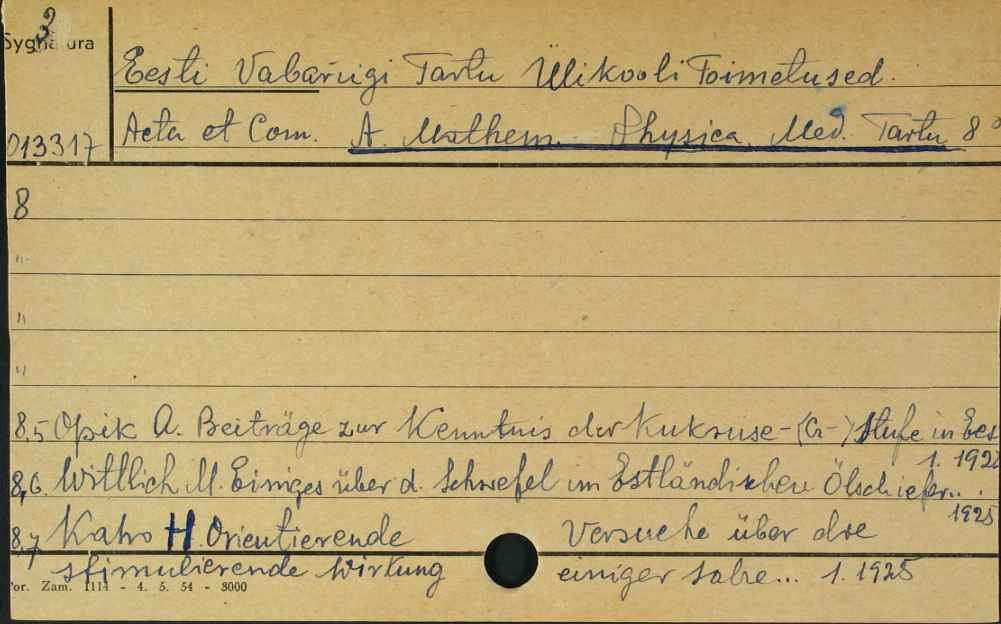 3
Sygnatura
Eesti Vabariigi Tartu Ülikooli Toimetused.
013317
Acta et Com. A. Mathem. Physica, Med. Tartu 8°
8
"
"
"
8,5 Öpik A. Beiträge zur Kenntnis der Kukruse-(C2-)Stufe in Ees
1. 192
8,6. Wittlich M. Einiges über d. Schwefel im Estländischen Ölschiefer...
1925
8,7 Kaho H. Orientierende Versuche über die
stimulierende Wirkung einiger Salze... 1. 1925
Por. Zam. 1114 - 4. 5. 54 - 3000